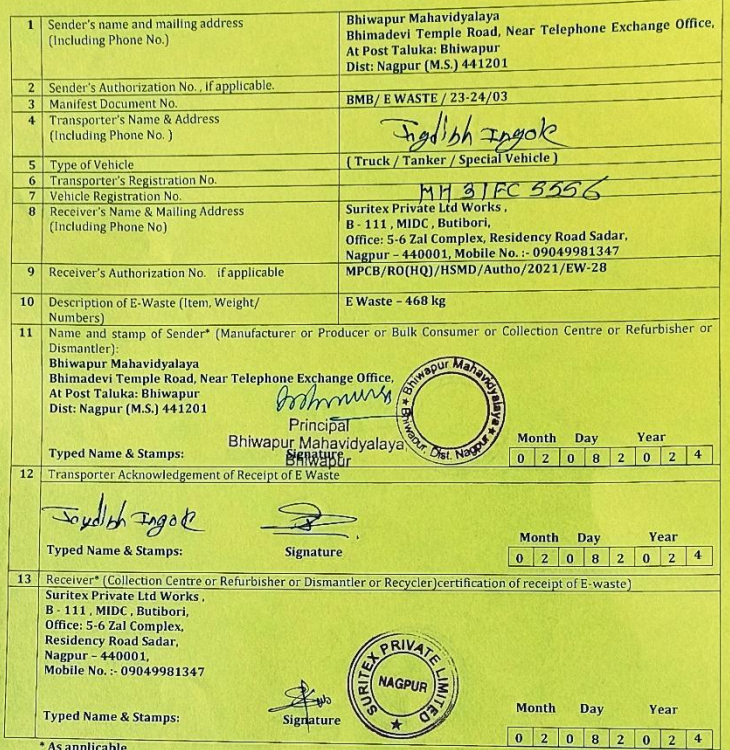 1 Sender's name and mailing address
(Including Phone No.)
Bhiwapur Mahavidyalaya
Bhimadevi Temple Road, Near Telephone Exchange Office,
At Post Taluka: Bhiwapur
Dist: Nagpur (M.S.) 441201
2 Sender's Authorization No. , if applicable.
3 Manifest Document No.
BMB/ E WASTE / 23-24/03
4 Transporter's Name & Address
(Including Phone No. )
Ingole
5 Type of Vehicle
( Truck / Tanker / Special Vehicle )
6 Transporter's Registration No.
7 Vehicle Registration No.
MH 31FC 5556
8 Receiver's Name & Mailing Address
(Including Phone No)
Suritex Private Ltd Works ,
B - 111 , MIDC , Butibori,
Office: 5-6 Zal Complex, Residency Road Sadar,
Nagpur – 440001, Mobile No. :- 09049981347
9 Receiver's Authorization No. if applicable
MPCB/RO(HQ)/HSMD/Autho/2021/EW-28
10 Description of E-Waste (Item, Weight/
Numbers)
E Waste – 468 kg
11 Name and stamp of Sender* (Manufacturer or Producer or Bulk Consumer or Collection Centre or Refurbisher or
Dismantler):
Bhiwapur Mahavidyalaya
Bhimadevi Temple Road, Near Telephone Exchange Office,
At Post Taluka: Bhiwapur
Dist: Nagpur (M.S.) 441201
Principal
Bhiwapur Mahavidyalaya,
Bhiwapur
★ Bhiwapur Mahavidyalaya ★
Bhiwapur, Dist. Nagpur
Typed Name & Stamps:
Signature
Month Day Year
0 2 0 8 2 0 2 4
12 Transporter Acknowledgement of Receipt of E Waste
Ingole
Typed Name & Stamps:
Signature
Month Day Year
0 2 0 8 2 0 2 4
13 Receiver* (Collection Centre or Refurbisher or Dismantler or Recycler)certification of receipt of E-waste)
Suritex Private Ltd Works ,
B - 111 , MIDC , Butibori,
Office: 5-6 Zal Complex,
Residency Road Sadar,
Nagpur – 440001,
Mobile No. :- 09049981347
SURITEX PRIVATE LIMITED
NAGPUR
★
Typed Name & Stamps:
Signature
Month Day Year
0 2 0 8 2 0 2 4
* As applicable